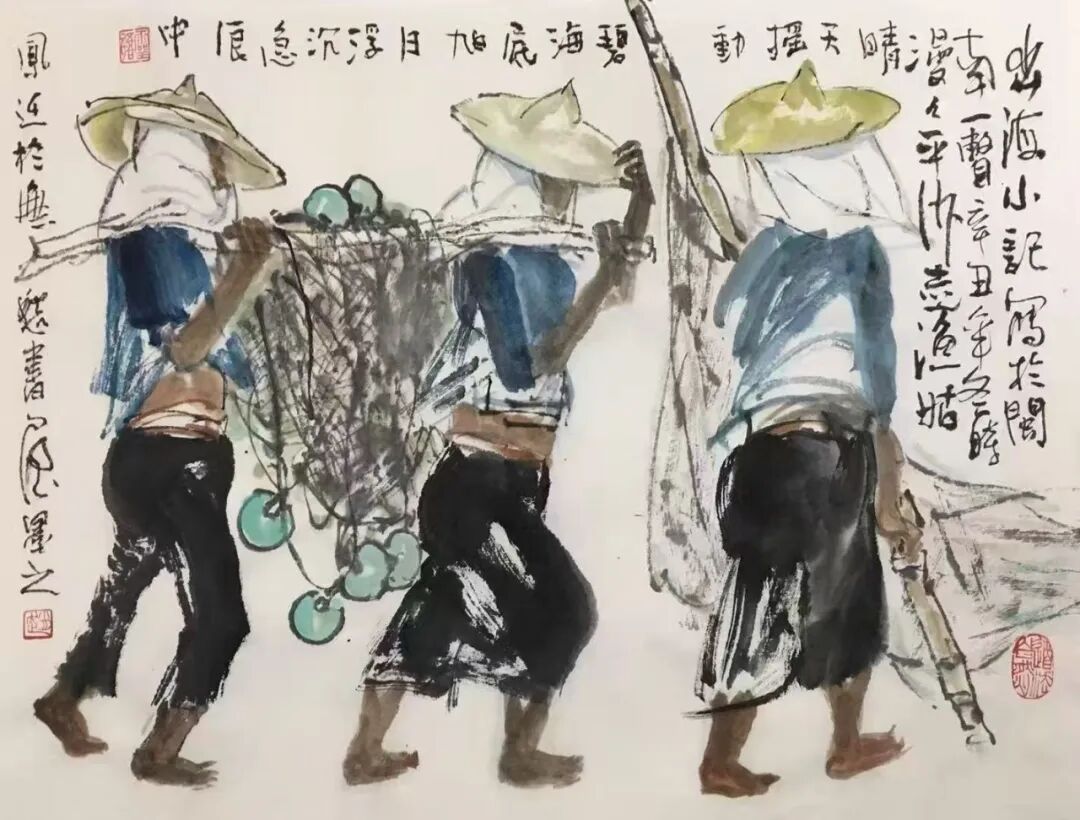 出海小記寫於閩
南一瞥辛丑年冬時
漫々平沙走漁姑
晴天摇動碧海底旭日浮沉急浪中
鳳近於無書墨之